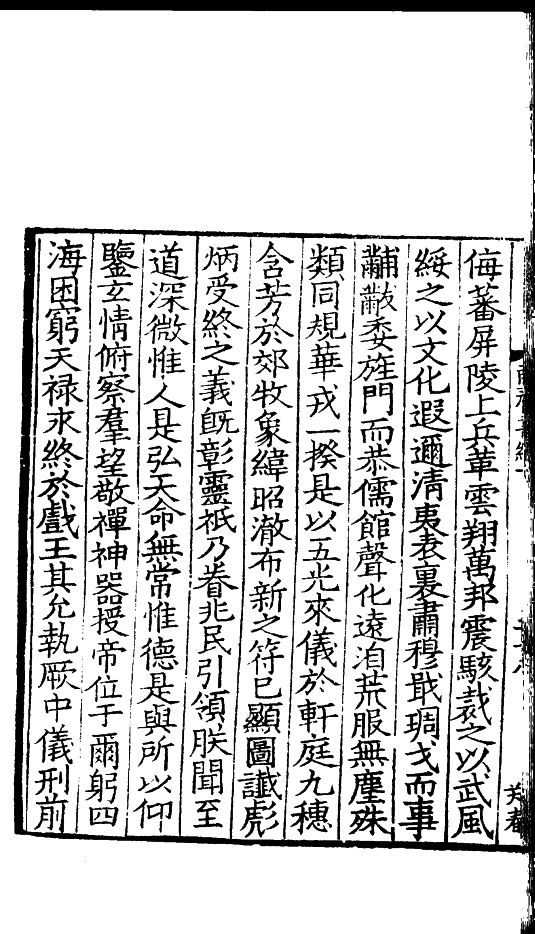 侮蕃屏陵上兵革雲翔萬邦震駭裁之以武風
綏之以文化遐邇清夷表裏肅穆戢琱戈而事
黼黻委旌門而恭儒館聲化遠洎荒服無塵殊
類同規華戎一揆是以五光來儀於軒庭九穗
含芳於郊牧象緯昭澈布新之符已顯圖讖彪
炳受終之義既彰靈祇乃眷兆民引領朕聞至
道深微惟人是弘天命無常惟德是與所以仰
鑒玄情俯察羣望敬禪神器授帝位于爾躬四
海困窮天禄永終於戲王其允執厥中儀刑前